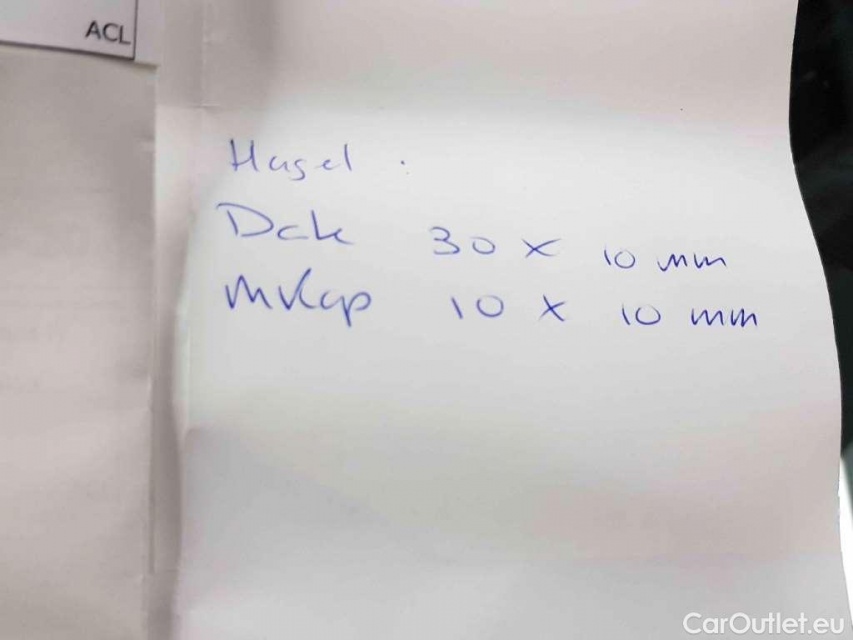 ACL
Hagel .
Dak 30 x 10 mm
Mvkap 10 x 10 mm
CarOutlet.eu